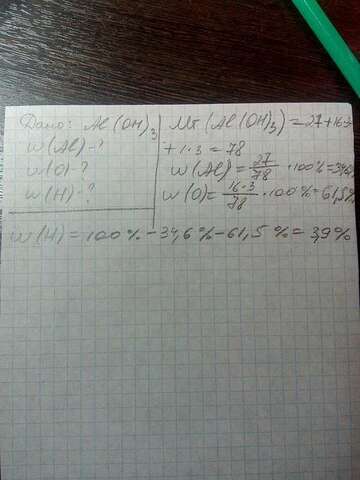 Дано: Al(OH)3
w(Al)-?
w(O)-?
w(H)-?
Mr(Al(OH)3)=27+16·3
+1·3=78
w(Al)=27/78·100%=34,6%
w(O)=16·3/78·100%=61,5%
w(H)=100%-34,6%-61,5%=3,9%